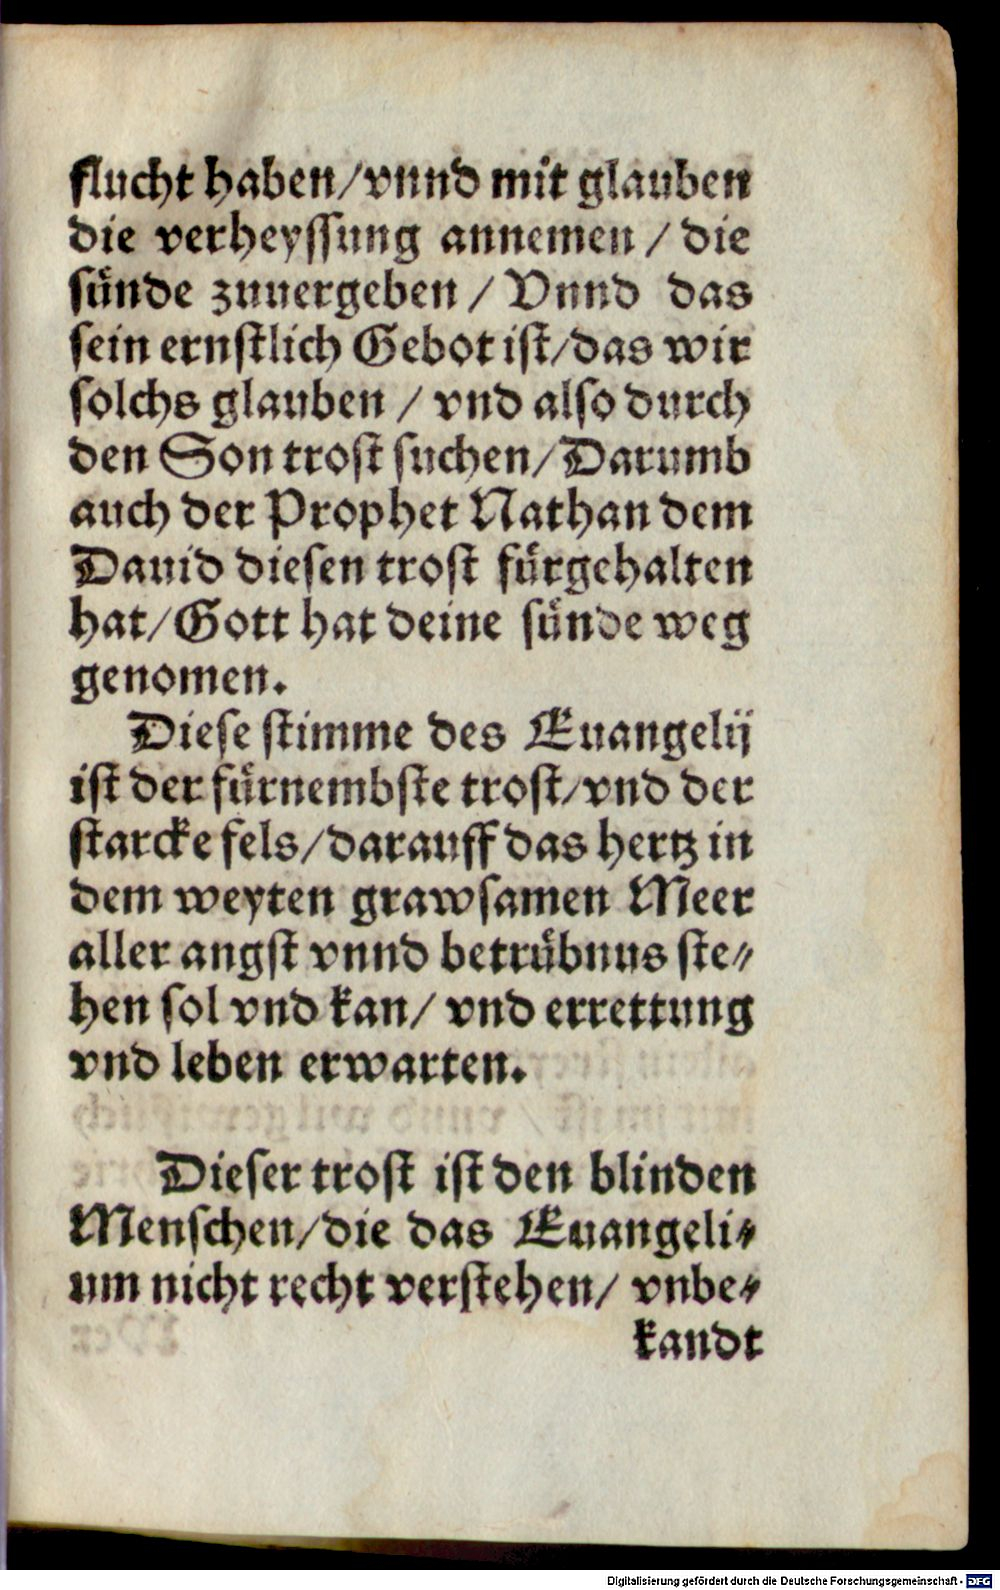 flucht haben/vnnd mit glauben
die verheyssung annemen / die
sünde zuuergeben / Vnnd das
sein ernstlich Gebot ist/das wir
solchs glauben / vnd also durch
den Son trost suchen/Darumb
auch der Prophet Nathan dem
Dauid diesen trost fürgehalten
hat/Gott hat deine sünde weg
genomen.
Diese stimme des Euangelij
ist der fürnembste trost/vnd der
starcke fels/darauff das hertz in
dem weyten grawsamen Meer
aller angst vnnd betrübnus ste⸗
hen sol vnd kan/ vnd errettung
vnd leben erwarten.
Dieser trost ist den blinden
Menschen/die das Euangeli⸗
um nicht recht verstehen/ vnbe⸗
kandt
Digitalisierung gefördert durch die Deutsche Forschungsgemeinschaft - DFG